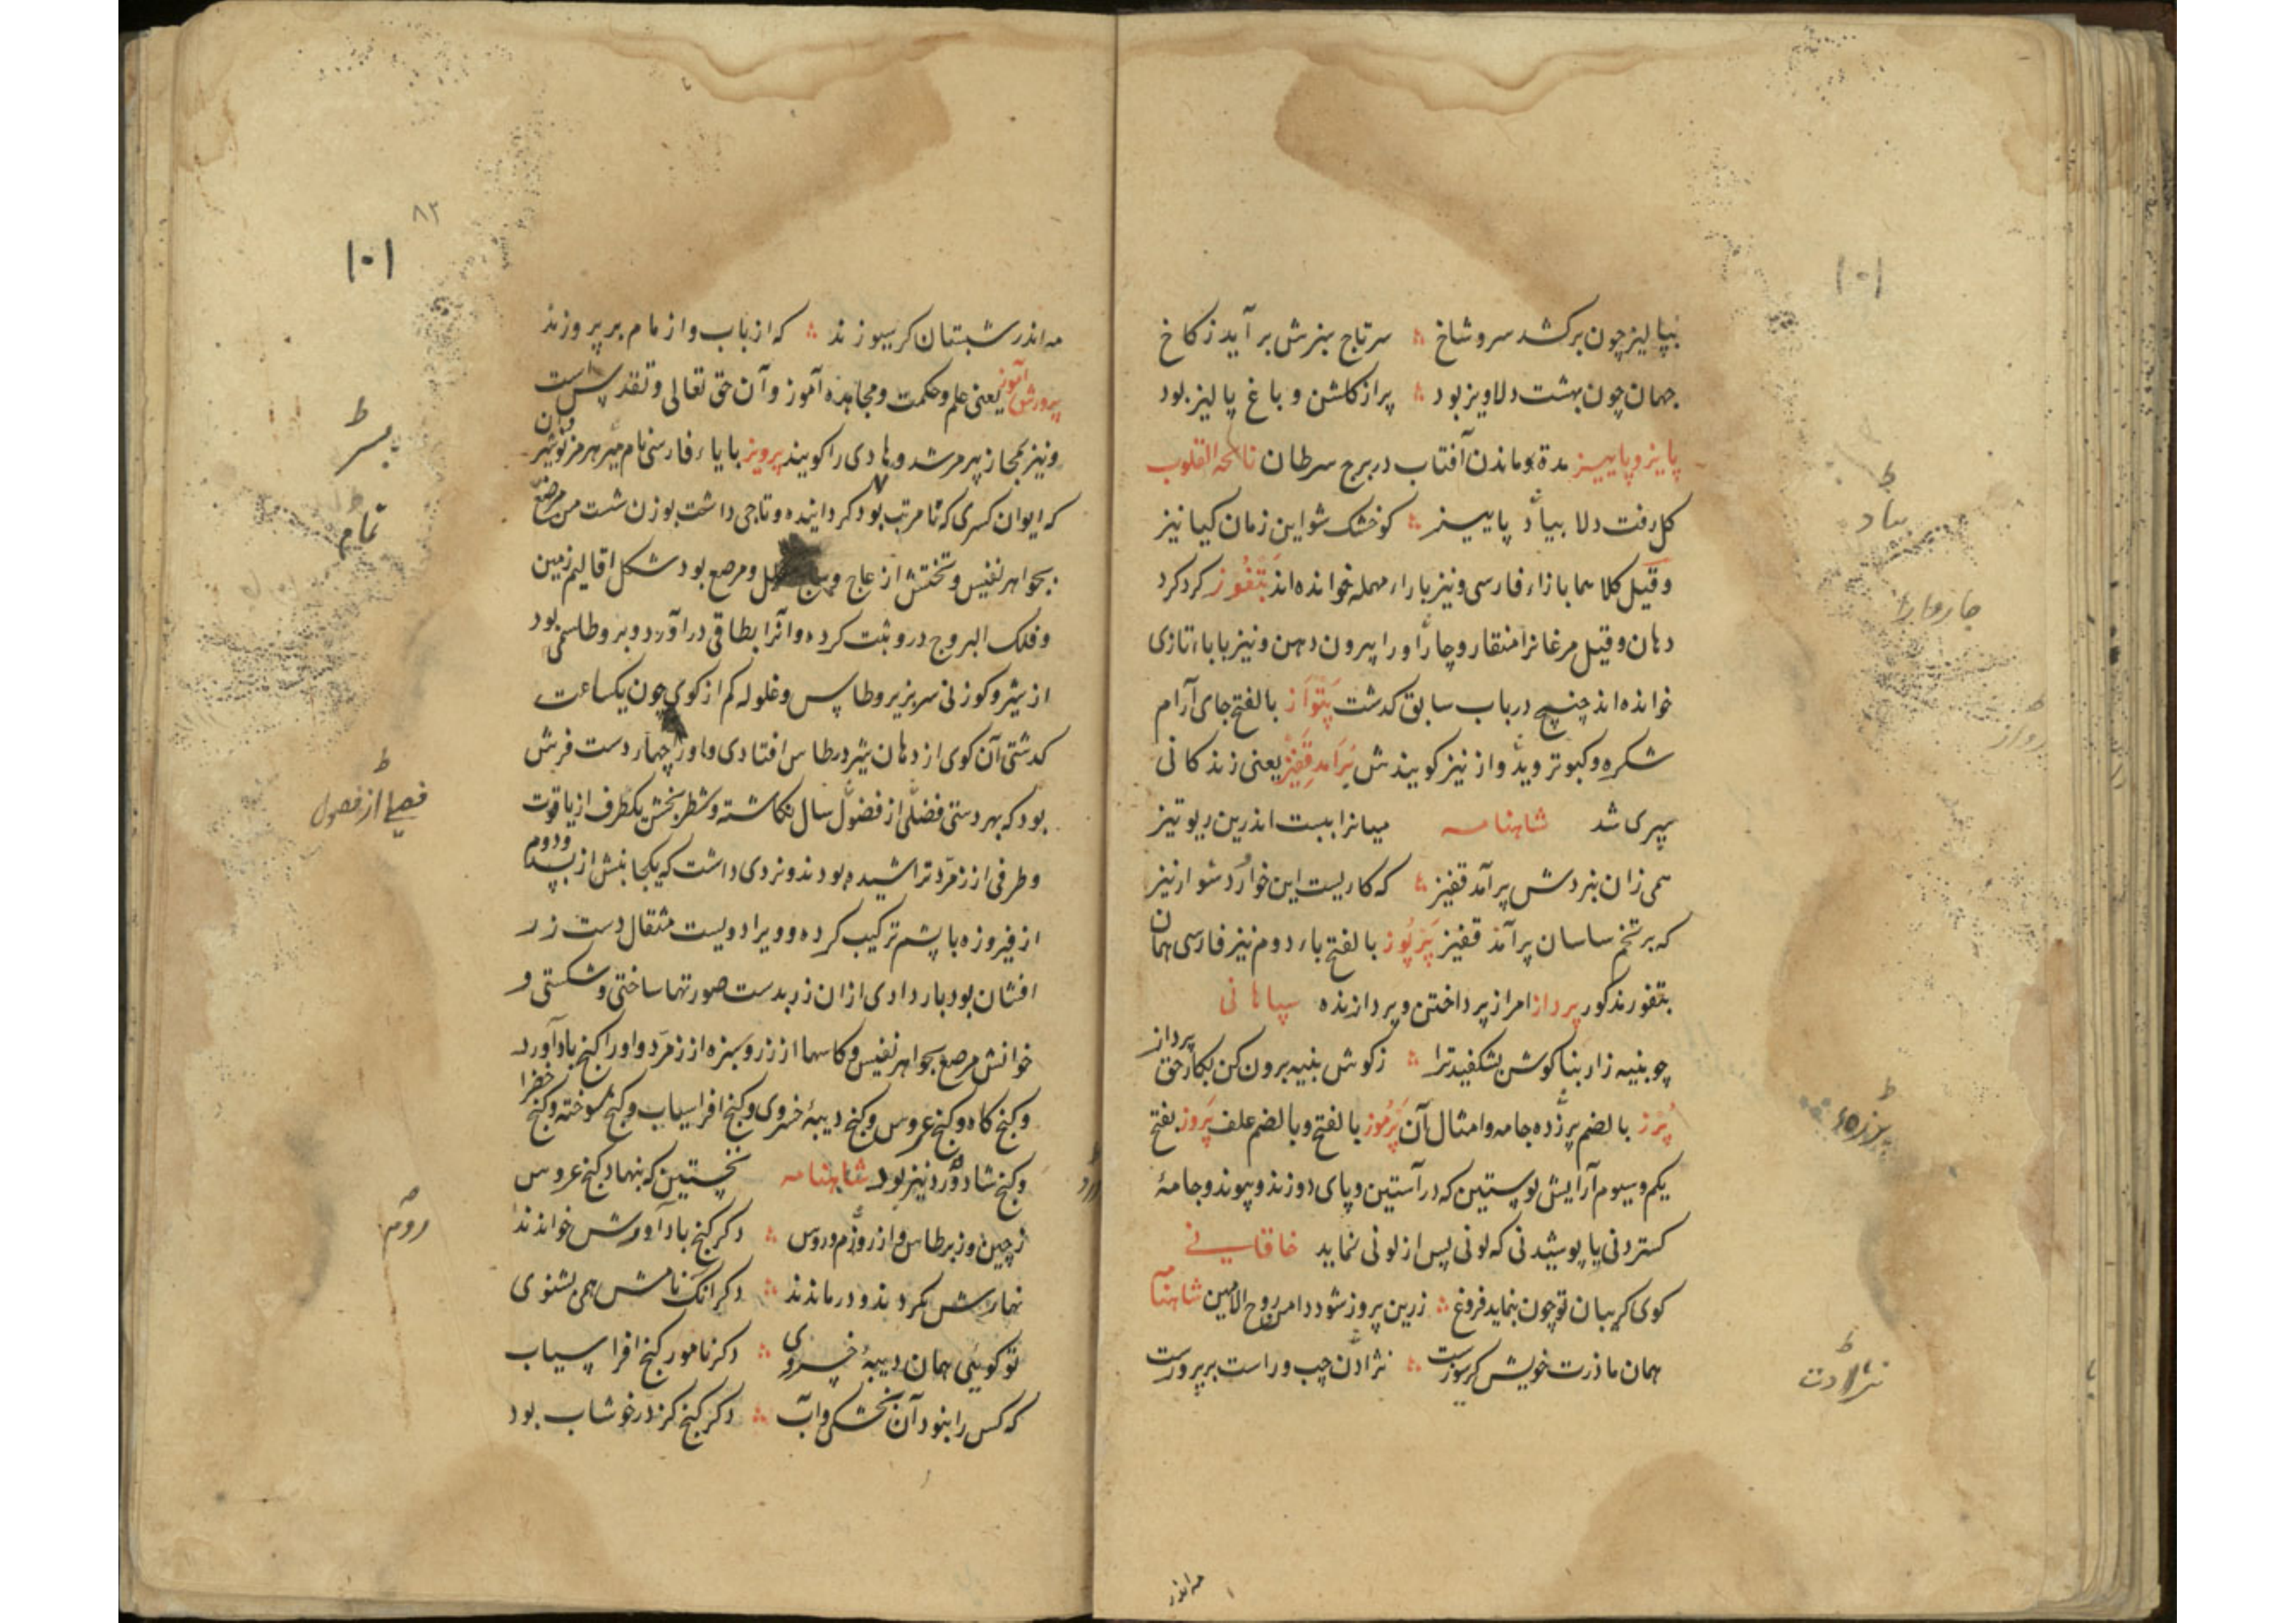 بپالیز چون برکشد سرو شاخ ؞ سر تاج سبزش برآید ز کاخ
جهان چون بهشت دلاویز بود ؞ پر از کلشن و باغ پالیز بود
پایز و پاییز مدة ماندن آفتاب در برج سرطان
کل رفت دلا بیاد پاییز ؞ کو خشک شو این زمان کیا نیز
وقیل کلاهما بازاء فارسی و نیز باراء مهمله خوانده اند بتفوز کرد کرد
دهان و قیل مرغانرا منقار و چاروا را پیرون دهن و نیز باباء تازی
خوانده اند چنپچ در باب سابق کدشت پتواز بالفتح جای آرام
شکره و کبوتر و یدواز نیز کویندش پرآمد قفیز یعنی زندکانی
سپری شد شاهنامه میانرا ببست اندرین ریو تیز
همی زان بنردش پرآمد قفیز ؞ که کاریست این خوار و دشوار نیز
که بر تخم ساسان پرآمد قفیز پرپوز بالفتح باء دوم نیز فارسی همان
بتفوز مذکور پرداز امر از پرداختن و پردازنده سپاهانی
چو پنبه زار بناکوش بشکفید ترا ؞ ز کوش پنبه برون کن بکار حق پرداز
پرز بالضم پرزده جامه و امثال آن پرموز بالفتح و بالضم علف پروز بفتح
یکم و سیوم آرایش پوستین که در آستین و پای دوزند و پیوند و جامهٔ
کستردنی یا پوشیدنی که لونی پس از لونی نماید خاقانی
کوی کریبان تو چون بنماید فروغ ؞ زرین پروز شود دامن روح الامین شاهنامه
همان مادرت خویش کرسیوزست ؞ نژادت چپ و راست بر پروزست
مه اندر
بیاد
چاروا را
پرزه
نژادت
۱۰۱
۸۲
۱۰۱
مه اندر شبستان کرسیوزند ؞ که از باب و از مام بر پروزند
پرورش آموز یعنی علم و حکمت و مجاهده آموز و آن حق تعالی و تقدس است
و نیز بمجاز پیر مرشد و هادی را کویند پرویز بایاء فارسی نام پسر هرمز نوشیروان
که ایوان کسری که نامرتب بود تمام کردانیده و تاجی داشت بوزن شست من مرصع
بجواهر نفیس و تختش از عاج و ساج و مرصع بود شکل اقالیم زمین
و فلک البروج درو ثبت کرده و آنرا بطاقی درآورد و برو طاسی بود
از شیر و کوزنی سر بزیر و طاس و غلوله کم از کوی چون یکساعت
کدشتی آن کوی از دهان شیر در طاس افتادی و او را چهار دست فرش
بود که بهر دستی فصلی از فصول سال نکاشته و شطرنجش یکطرف از یاقوت
و طرفی از زمرد تراشیده بودند و نردی داشت که یکجانبش از بسد و دوم
از فیروزه با پشم ترکیب کرده و ویرا دویست مثقال دست زر
افشان بود باردادی ازان زر بدست صورتها ساختی و شکستی و
خوانش مرصع بجواهر نفیس و کاسها از زر و سبزه از زمرد و او را کنج بادآورد
و کنج کاو و کنج عروس و کنج دیبهٔ خسروی و کنج افراسیاب و کنج سوخته و کنج خضرا
و کنج شادورد نیز بود شاهنامه نخستین که بنهاد کنج عروس
ز چین و ز برطاس و از روم و روس ؞ دکر کنج بادآورش خواندند
شمارش بکردند و درماندند ؞ دکر آنک نامش همی بشنوی
تو کویئی همان دیبهٔ خسروی ؞ دکر نامور کنج افراسیاب
که کس را بنود آن بخشکی و آب ؞ دکر کنج کز در خوشاب بود
پسر
تمام
فصلی از فصول
روم